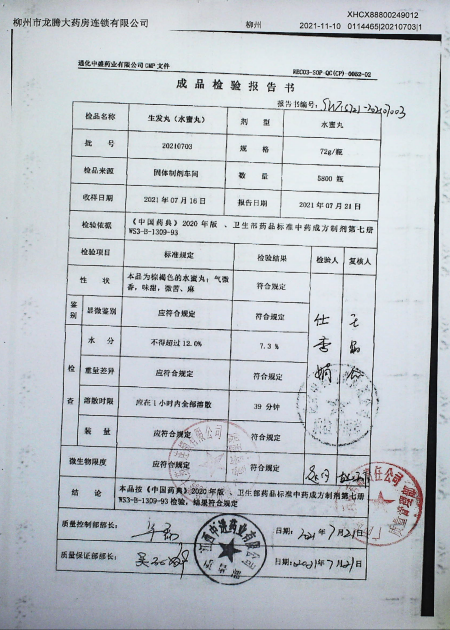 XHCX88800249012
柳州市龙腾大药房连锁有限公司 柳州 2021-11-10 0114465|20210703|1
通化中盛药业有限公司GMP文件
成品检验报告书
报告书编号:
检品名称 生发丸(水蜜丸) 剂型 水蜜丸
批号 20210703 规格 72g/瓶
检品来源 固体制剂车间 数量 5800 瓶
收样日期 2021年07月16日 报告日期 2021年07月21日
检验依据 《中国药典》2020年版、卫生部药品标准中药成方制剂第七册
WS3-B-1309-93
检验项目 标准规定 检验结果 检验人 复核人
性状 本品为棕褐色的水蜜丸;气微
香,味甜,微苦、麻 符合规定
鉴别 显微鉴别 应符合规定 符合规定
检查 水分 不得超过12.0% 7.3%
重量差异 应符合规定 符合规定
溶散时限 应在1小时内全部溶散 39分钟
装量 应符合规定 符合规定
微生物限度 应符合规定 符合规定
结论 本品按《中国药典》2020年版、卫生部药品标准中药成方制剂第七册
WS3-B-1309-93检验,结果符合规定
质量控制部部长: 日期:2021年7月21日
质量保证部部长: 日期:2021年7月21日